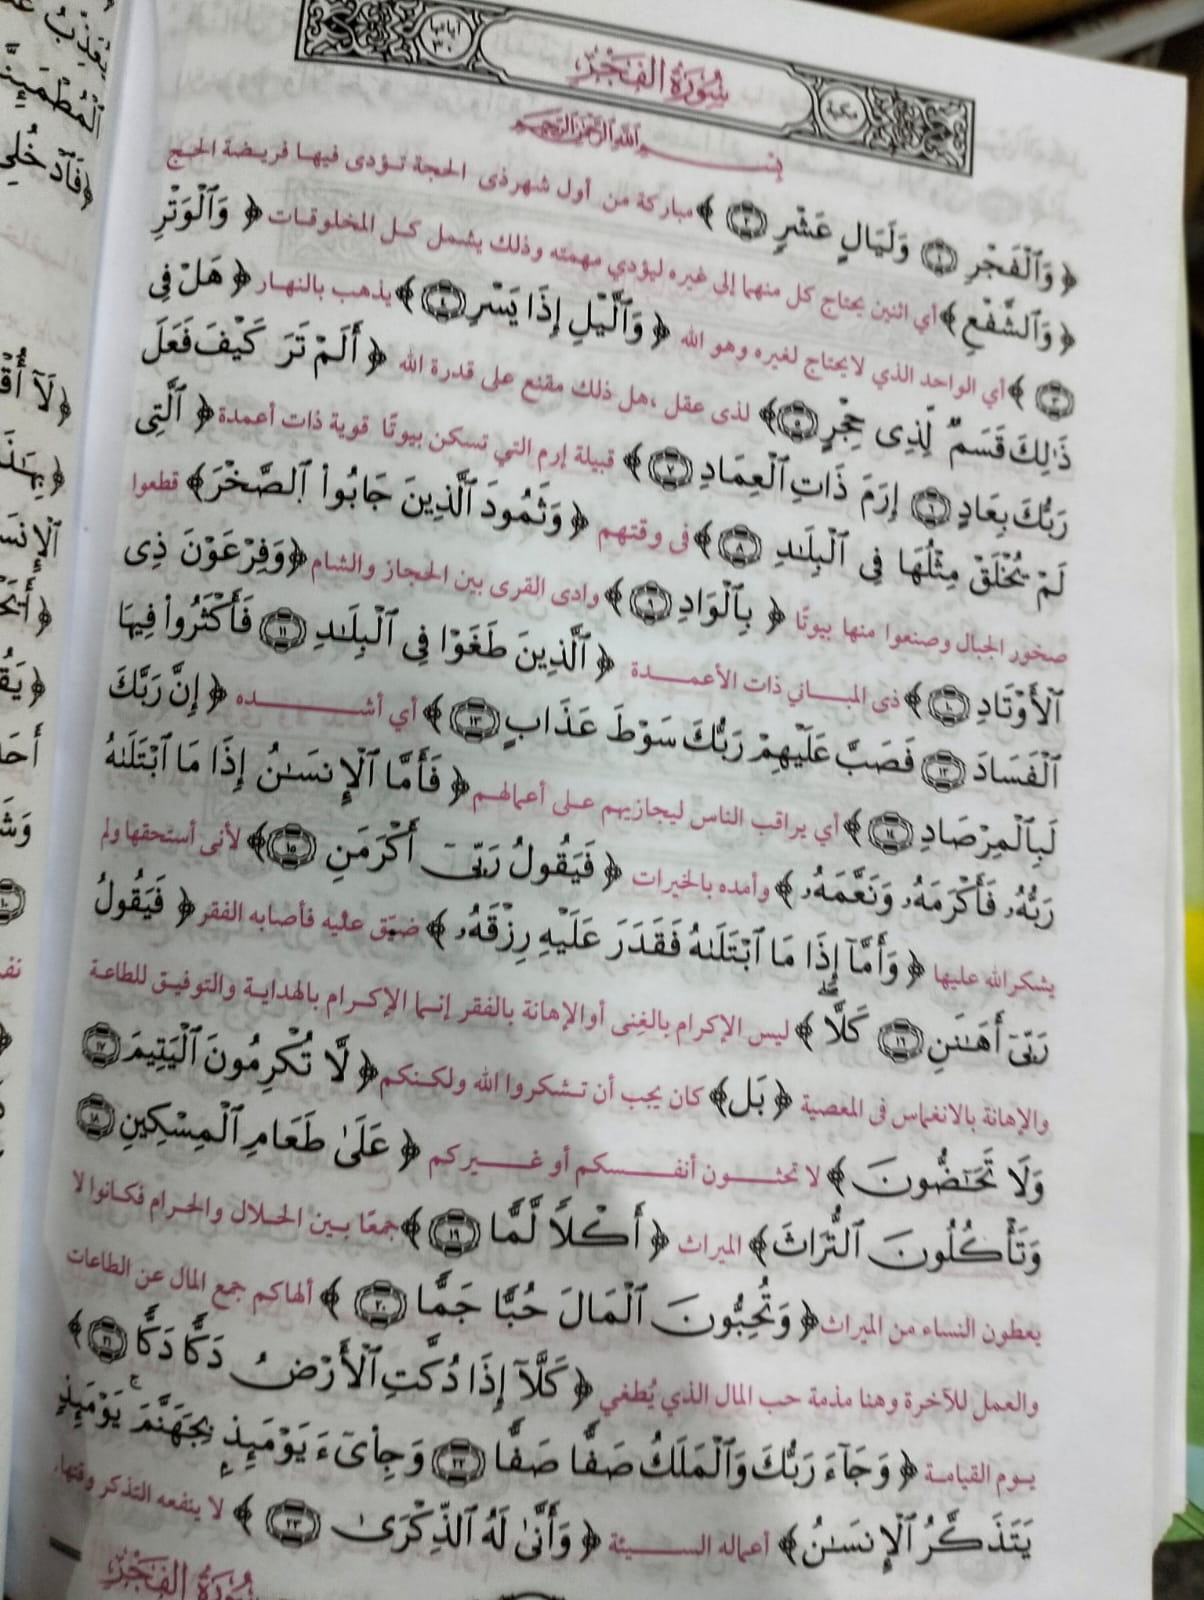 سُورَةُ الفَجْرِ
مكية
آياتها ٣٠
بِسْمِ اللَّهِ الرَّحْمَٰنِ الرَّحِيمِ
﴿ وَٱلْفَجْرِ ١ وَلَيَالٍ عَشْرٍ ٢ ﴾ مباركة من أول شهر ذى الحجة تؤدى فيها فريضة الحج
﴿ وَٱلشَّفْعِ ﴾ أي اثنين يحتاج كل منهما إلى غيره ليؤدي مهمته وذلك يشمل كل المخلوقات ﴿ وَٱلْوَتْرِ
٣ ﴾ أي الواحد الذي لايحتاج لغيره وهو الله ﴿ وَٱلَّيْلِ إِذَا يَسْرِ ٤ ﴾ يذهب بالنهار ﴿ هَلْ فِى
ذَٰلِكَ قَسَمٌ لِّذِى حِجْرٍ ٥ ﴾ لذى عقل ،هل ذلك مقنع على قدرة الله ﴿ أَلَمْ تَرَ كَيْفَ فَعَلَ
رَبُّكَ بِعَادٍ ٦ إِرَمَ ذَاتِ ٱلْعِمَادِ ٧ ﴾ قبيلة إرم التي تسكن بيوتًا قوية ذات أعمدة ﴿ ٱلَّتِى
لَمْ يُخْلَقْ مِثْلُهَا فِى ٱلْبِلَٰدِ ٨ ﴾ فى وقتهم ﴿ وَثَمُودَ ٱلَّذِينَ جَابُوا۟ ٱلصَّخْرَ ﴾ قطعوا
صخور الجبال وصنعوا منها بيوتًا ﴿ بِٱلْوَادِ ٩ ﴾ وادى القرى بين الحجاز والشام ﴿ وَفِرْعَوْنَ ذِى
ٱلْأَوْتَادِ ١٠ ﴾ ذى المبانى ذات الأعمدة ﴿ ٱلَّذِينَ طَغَوْا۟ فِى ٱلْبِلَٰدِ ١١ فَأَكْثَرُوا۟ فِيهَا
ٱلْفَسَادَ ١٢ فَصَبَّ عَلَيْهِمْ رَبُّكَ سَوْطَ عَذَابٍ ١٣ ﴾ أي أشده ﴿ إِنَّ رَبَّكَ
لَبِٱلْمِرْصَادِ ١٤ ﴾ أي يراقب الناس ليجازيهم على أعمالهم ﴿ فَأَمَّا ٱلْإِنسَٰنُ إِذَا مَا ٱبْتَلَىٰهُ
رَبُّهُۥ فَأَكْرَمَهُۥ وَنَعَّمَهُۥ ﴾ وأمده بالخيرات ﴿ فَيَقُولُ رَبِّىٓ أَكْرَمَنِ ١٥ ﴾ لأنى أستحقها ولم
يشكر الله عليها ﴿ وَأَمَّآ إِذَا مَا ٱبْتَلَىٰهُ فَقَدَرَ عَلَيْهِ رِزْقَهُۥ ﴾ ضيَّق عليه فأصابه الفقر ﴿ فَيَقُولُ
رَبِّىٓ أَهَٰنَنِ ١٦ كَلَّا ﴾ ليس الإكرام بالغِنى أو الإهانة بالفقر إنما الإكرام بالهداية والتوفيق للطاعة
والإهانة بالانغماس فى المعصية ﴿ بَل ﴾ كان يجب أن تشكروا الله ولكنكم ﴿ لَّا تُكْرِمُونَ ٱلْيَتِيمَ ١٧
وَلَا تَحَٰٓضُّونَ ﴾ لا تحثون أنفسكم أو غيركم ﴿ عَلَىٰ طَعَامِ ٱلْمِسْكِينِ ١٨
وَتَأْكُلُونَ ٱلتُّرَاثَ ﴾ الميراث ﴿ أَكْلًا لَّمًّا ١٩ ﴾ جمعًا بين الحلال والحرام فكانوا لا
يعطون النساء من الميراث ﴿ وَتُحِبُّونَ ٱلْمَالَ حُبًّا جَمًّا ٢٠ ﴾ ألهاكم جمع المال عن الطاعات
والعمل للآخرة وهنا مذمة حب المال الذي يُطغي ﴿ كَلَّآ إِذَا دُكَّتِ ٱلْأَرْضُ دَكًّا دَكًّا ٢١ ﴾
يوم القيامة ﴿ وَجَآءَ رَبُّكَ وَٱلْمَلَكُ صَفًّا صَفًّا ٢٢ وَجِا۟ىٓءَ يَوْمَئِذٍۭ بِجَهَنَّمَ ۚ يَوْمَئِذٍ
يَتَذَكَّرُ ٱلْإِنسَٰنُ ﴾ أعماله السيئة ﴿ وَأَنَّىٰ لَهُ ٱلذِّكْرَىٰ ٢٣ ﴾ لا ينفعه التذكر وقتها.
سُورَةُ الفَجْرِ